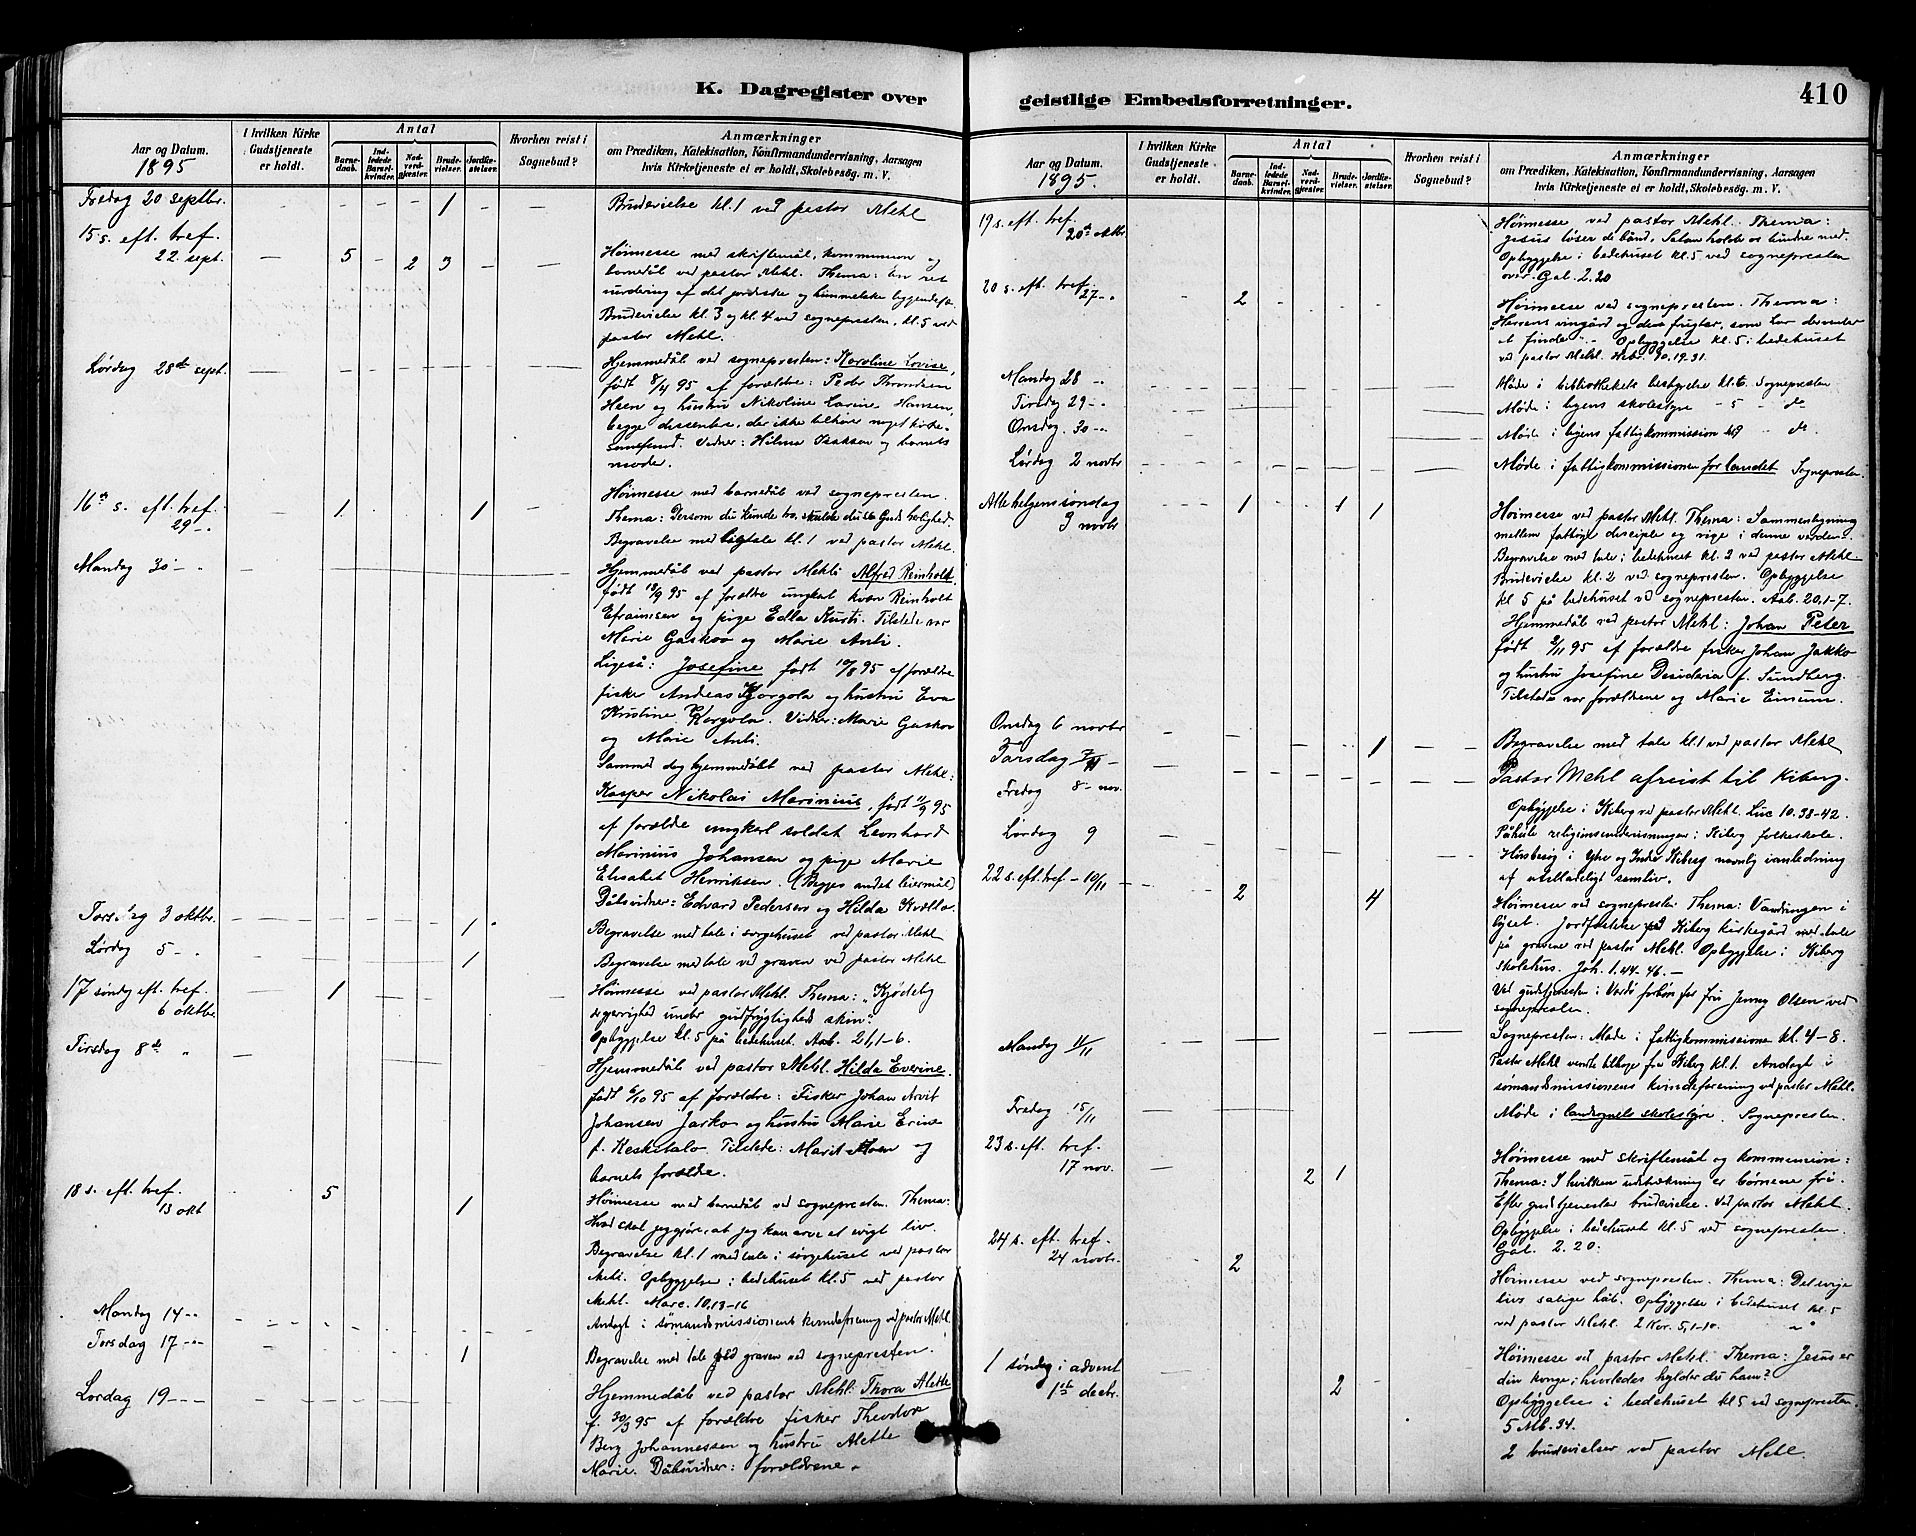 K. Dagregister over
Aar og Datum.
1895
I hvilken Kirke
Gudstjeneste
er holdt.
Antal
Barne-
daab.
Ind-
ledede
Barsel-
kvinder.
Nad-
verd-
gjester.
Brude-
vielser.
Jordfæ-
stelser.
Hvorhen reist i
Sognebud?
Anmærkninger
om Prædiken, Katekisation, Konfirmandundervisning, Aarsagen
hvis Kirketjeneste ei er holdt, Skolebesøg. m. V.
Fredag 20 septbr. - - - - 1 - - Brudevielse kl. 1 ved pastor Mehl
15 s. eft. tref.
22. sept. - 5 - 2 3 - - Høimesse med skriftemål, kommunion og
barnedåb ved pastor Mehl. Thema: En ret
vurdering af det jordiske og himmelske
Brudevielse kl. 3 og kl. 4 ved sognepresten, kl. 5 ved
pastor Mehl.
Lørdag 28de sept. Hjemmedåb ved sognepresten: Karoline Lovise,
født 8/4 95 af forældre: Peder Throndsen
Hsen og hustru Nikoline Larine Hansen,
begge dissentere, der ikke tilhører noget kirke-
samfund. Vidner: Hilma Isaksen og barnets
moder.
16de s. eft. tref.
29 - - 1 1 - Høimesse med barnedåb ved sognepresten.
Thema: Dersom du kunde tro, skulde du se Guds herlighed.
Begravelse med ligtale kl. 1 ved pastor Mehl.
Mandag 30 - Hjemmedåb ved pastor Mehl: Alfred Reinholt,
født 18/9 95 af forældre ungkarl kvæn Reinholt
Efraimsen og pige Edla Kursti. Tilstede var
Marie Gaskov og Marie Anti.
Ligeså: Josefine født 19/8 95 af forældre
fisker Andreas Korgola og hustru Eva
Kristine Korgola. Vidner: Marie Gaskov
og Marie Anti.
Samme dag hjemmedøbt ved pastor Mehl:
Kasper Nikolai Marinius, født 11/9 95
af forældre ungkarl soldat Leonhard
Marinius Johansen og pige Marie
Elisabet Henriksen. (Begges andet leiermål)
Dåbsvidner: Edvard Pedersen og Hilda
Torsdag 3 oktbr. 1 Begravelse med tale i sørgehuset ved pastor Mehl
Lørdag 5 - 1 Begravelse med tale ved graven ved pastor Mehl
17 søndag eft. tref.
6 oktbr. - 1 Høimesse ved pastor Mehl. Thema: "Kjødelig
ærgjerrighed under gudfrygtigheds skin".
Opbyggelse kl. 5 på bedehuset. Aab. 21,1-6.
Tirsdag 8de " Hjemmedåb ved pastor Mehl. Hilda Everine.
født 6/10 95 af forældre: Fisker Johan Arvit
Johansen Jarko og hustru Marie Erine
f. Keskitalo. Tilstede: Marit Moen og
barnets forældre.
18 s. eft. tref.
13 okt 5 1 Høimesse med barnedåb ved sognepresten. Thema:
Hvad skal jeg gjøre, at jeg kan arve et evigt liv.
Begravelse kl. 1 med tale i sørgehuset ved pastor
Mehl. Opbyggelse i bedehuset kl. 5 ved pastor
Mehl. Marc. 10,13-16
Mandag 14 - Andagt i sømandsmissionens kvindeforening ved pastor Mehl.
Torsdag 17 - 1 Begravelse med tale ved graven ved sognepresten.
Lørdag 19 - Hjemmedåb ved pastor Mehl: Thora Alette
f. 30/3 95 af forældre fisker Theodor
Berg Johannessen og hustru Alette
Marie. Dåbsvidner: forældrene.
geistlige Embedsforretninger.
410
Aar og Datum.
1895.
I hvilken Kirke
Gudstjeneste
er holdt.
Antal
Barne-
daab.
Ind-
ledede
Barsel-
kvinder.
Nad-
verd-
gjester.
Brude-
vielser.
Jordfæ-
stelser.
Hvorhen reist i
Sognebud?
Anmærkninger
om Prædiken, Katekisation, Konfirmandundervisning, Aarsagen
hvis Kirketjeneste ei er holdt, Skolebesøg m. V.
19 s. eft. tref.
20de oktbr. Høimesse ved pastor Mehl. Thema:
Jesus løser de bånd, Satan holder os bundne med.
Opbyggelse i bedehuset kl. 5 ved sognepresten
over Gal. 2.20
20 s. eft. tref.
27 - - 2 Høimesse ved sognepresten. Thema:
Herrens vingård og dens frugter, som har
at finde. Opbyggelse kl. 5 i bedehuset
ved pastor Mehl. Hebr. 10.19.31.
Mandag 28 " Møde i bibliothekets bestyrelse kl. 6. Sognepresten
Tirsdag 29 - Møde i byens skolestyre - 5 - do
Onsdag 30 - Møde i byens fattigkommission kl 9 " do
Lørdag 2 novbr Møde i fattigkommissionen for landet Sognepresten
Allehelgenssøndag
3 novbr 1 1 1 Høimesse ved pastor Mehl. Thema: Sammenligning
mellem fattige disciple og rige i denne verden.
Begravelse med tale i bedehuset kl. 2 ved pastor Mehl
Brudevielse kl. 2 ved sognepresten. Opbyggelse
kl 5 på bedehuset ved sognepresten. Aab. 20,1-7.
Hjemmedåb ved pastor Mehl: Johan Peter
født 2/11 95 af forældre fisker Johan Jakko
og hustru Josefine Desideria f. Sundberg.
Tilstede var forældrene og Marie Einsum.
Onsdag 6 novbr 1 Begravelse med tale kl. 1 ved pastor Mehl
Torsdag 7/11 - Pastor Mehl afreist til Kiberg.
Fredag 8 - nov. Opbyggelse i Kiberg ved pastor Mehl. Luc 10.38-42.
Lørdag 9 Påhøre religionsundervisningen i Kiberg folkeskole.
Husbesøg i Ytre og Indre Kiberg navnlig i anledning
af utilladeligt samliv.
22 s. eft. tref - 10/11 2 4 Høimesse ved sognepresten Thema: Vandringen i
lyset. Jordfæstelse på Kiberg kirkegård med tale
på gravene ved pastor Mehl. Opbyggelse i Kiberg
skolehus. Joh. 1.44-46. -
Ved gudstjenesten i Vardø forbøn for fru Jenny Olsen ved
sognepresten.
Mandag 11/11 Sognepresten: Møde i fattigkommissionen kl. 4-8.
Pastor Mehl vendte tilbage fra Kiberg kl. 1. Andagt i
sømandsmissionens kvindeforening ved pastor Mehl.
Fredag 15/11 Møde i landsognets skolestyre. Sognepresten.
23 s. eft tref.
17 nov. 2 1 Høimesse med skriftemål og kommunion:
Thema: I hvilken udstrækning er børnene fri.
Efter gudstjenesten brudevielse. Ved pastor Mehl.
Opbyggelse i bedehuset kl. 5 ved sognepresten.
Gal. 2.20.
24 s. eft. tref.
24 novbr. 2 Høimesse ved sognepresten. Thema: Det evige
livs salige håb. Opbyggelse i bedehuset kl. 5
ved pastor Mehl. 2 Kor. 5,1-10.
1 søndag i advent
1ste decbr. 2 Høimesse ved pastor Mehl. Thema: Jesus er
din konge; hvorledes hylder du ham?
Opbyggelse i bedehuset kl 5 ved sognepresten.
5 Mb. 34.
2 brudevielser ved pastor Mehl.